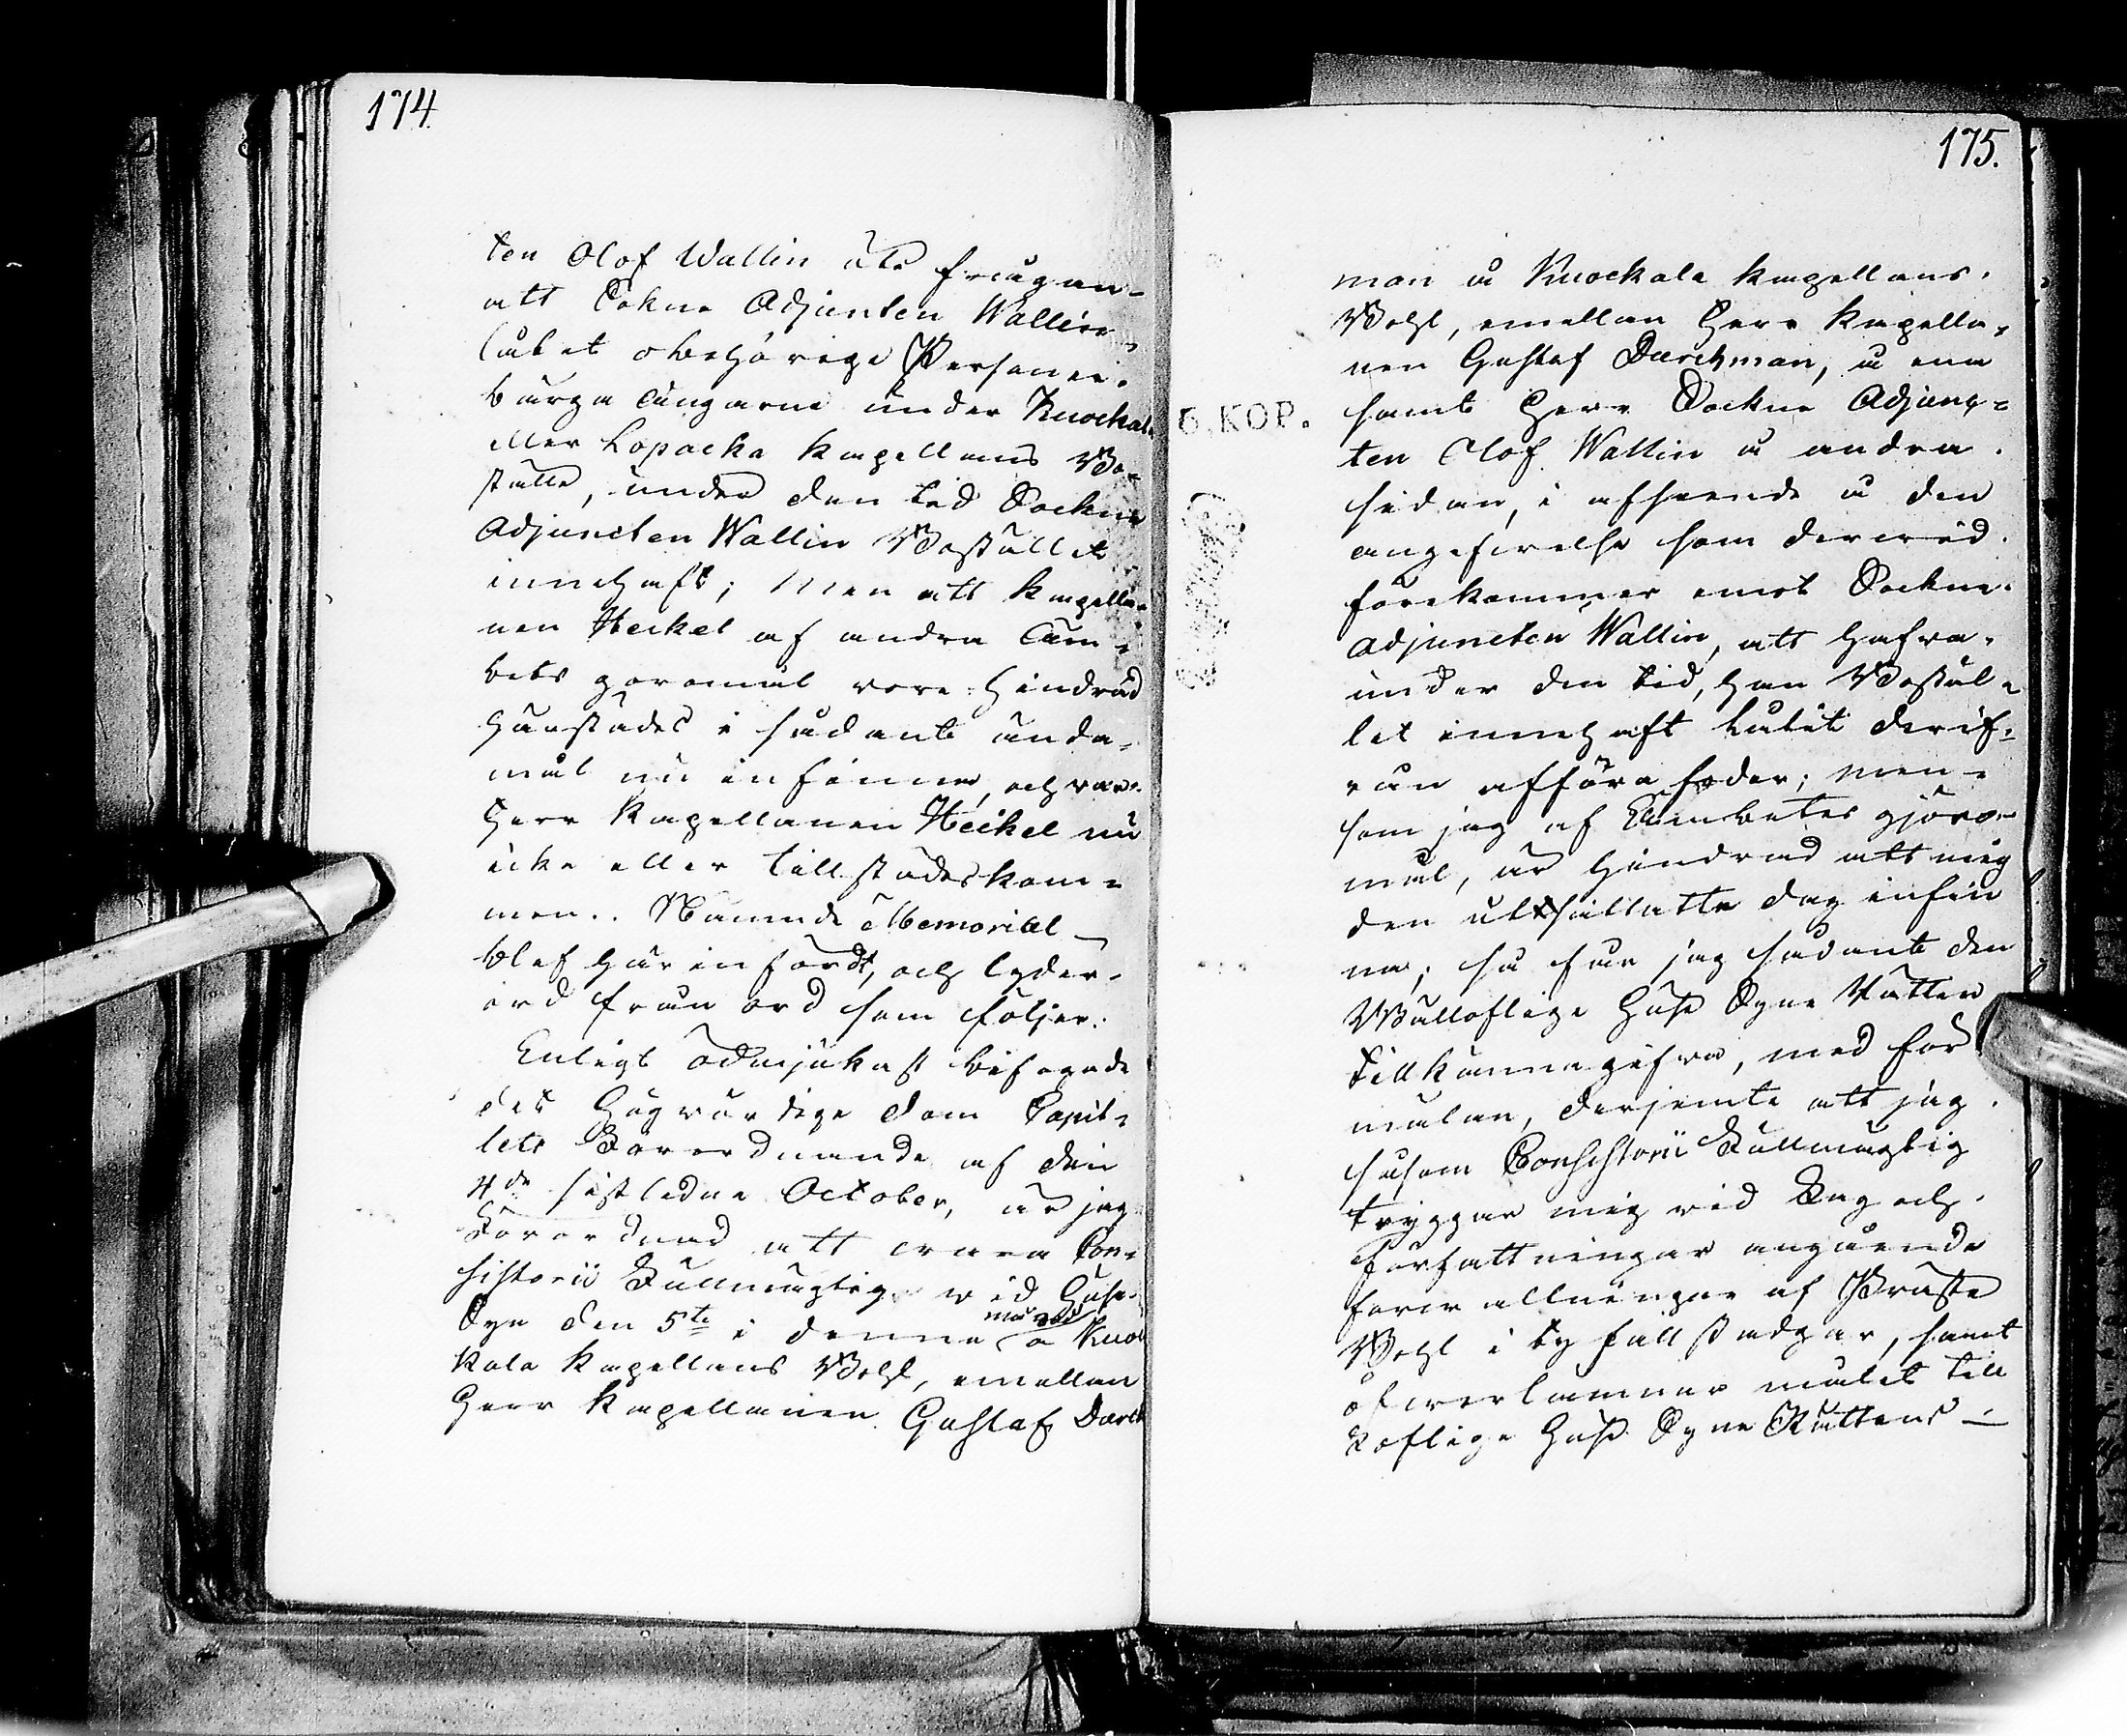 174.
ten Olof Wallin åtr frågan-
att Sokne Adjunten Wallin
låtet obehörige Personer.
bärga ängarne under Knockala
eller Lopocka Kapellans Bo-
ställe, under den tid Sockne
Adjuncten Wallin Boställe
innehaft; Men att Kapella-
nen Heikel af andra Äm-
bets göromål vore hindrad
härstädes i sådant ända-
mål nu infinna, och var
Herr Kapellanen Heikel nu
icke eller tillstädeskom-
men.. Nämnde Memorial
blef här infördt, och lyder.
ord från ord som följer.
Enligt ödmjukast bifogade
det Högvördige Dom Capit-
lets Förordnande af den
4de sistledne October, är jag
Förordnad att vara Con-
sistorii Fullmägtig vid Huse-
Syn den 5te i denne månad å Knoc
kala Kapellans Bohl, emellan
Herr Kapellanen Gustaf Dæreh
175.
man å Knockala Kapellans.
Bohl, emellan Herr Kapella-
nen Gustaf Dærehman, å ena
samt Herr Sockne Adjunc-
ten Olof Wallin å andra.
sidan, i afseende å den
angifvelse som dervid.
förekommer emot Sockne.
adjuncten Wallin, att hafva.
under den tid, han Boställ-
let innehaft låtit derif-
rån afföra foder; men-
som jag af Embetes gjöro-
mål, är hindrad att mig
den utsatte dag infin
na; så får jag sådant den
Vällofliga Huse Syne Rätten
tillkännagifva, med för
mälan, derjemte att jag.
såsom Consistorii Fullmägtig
tryggar mig vid Lag och.
författningar angående
förvallningar af Präste
Bohl i ty fall stadgar, samt
öfverlämnar målet till
Lofliga Huse Syne Rättens
6. KOP.